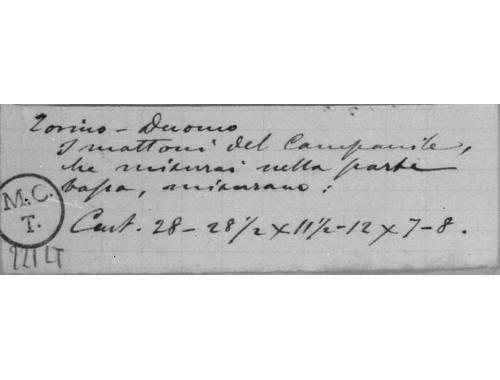 Torino - Duomo
I mattoni del Campanile,
che misurai nella parte
bassa, misurano:
Cent. 28 - 28 1/2 x 11 1/2 - 12 x 7 - 8.
M.C.
T.